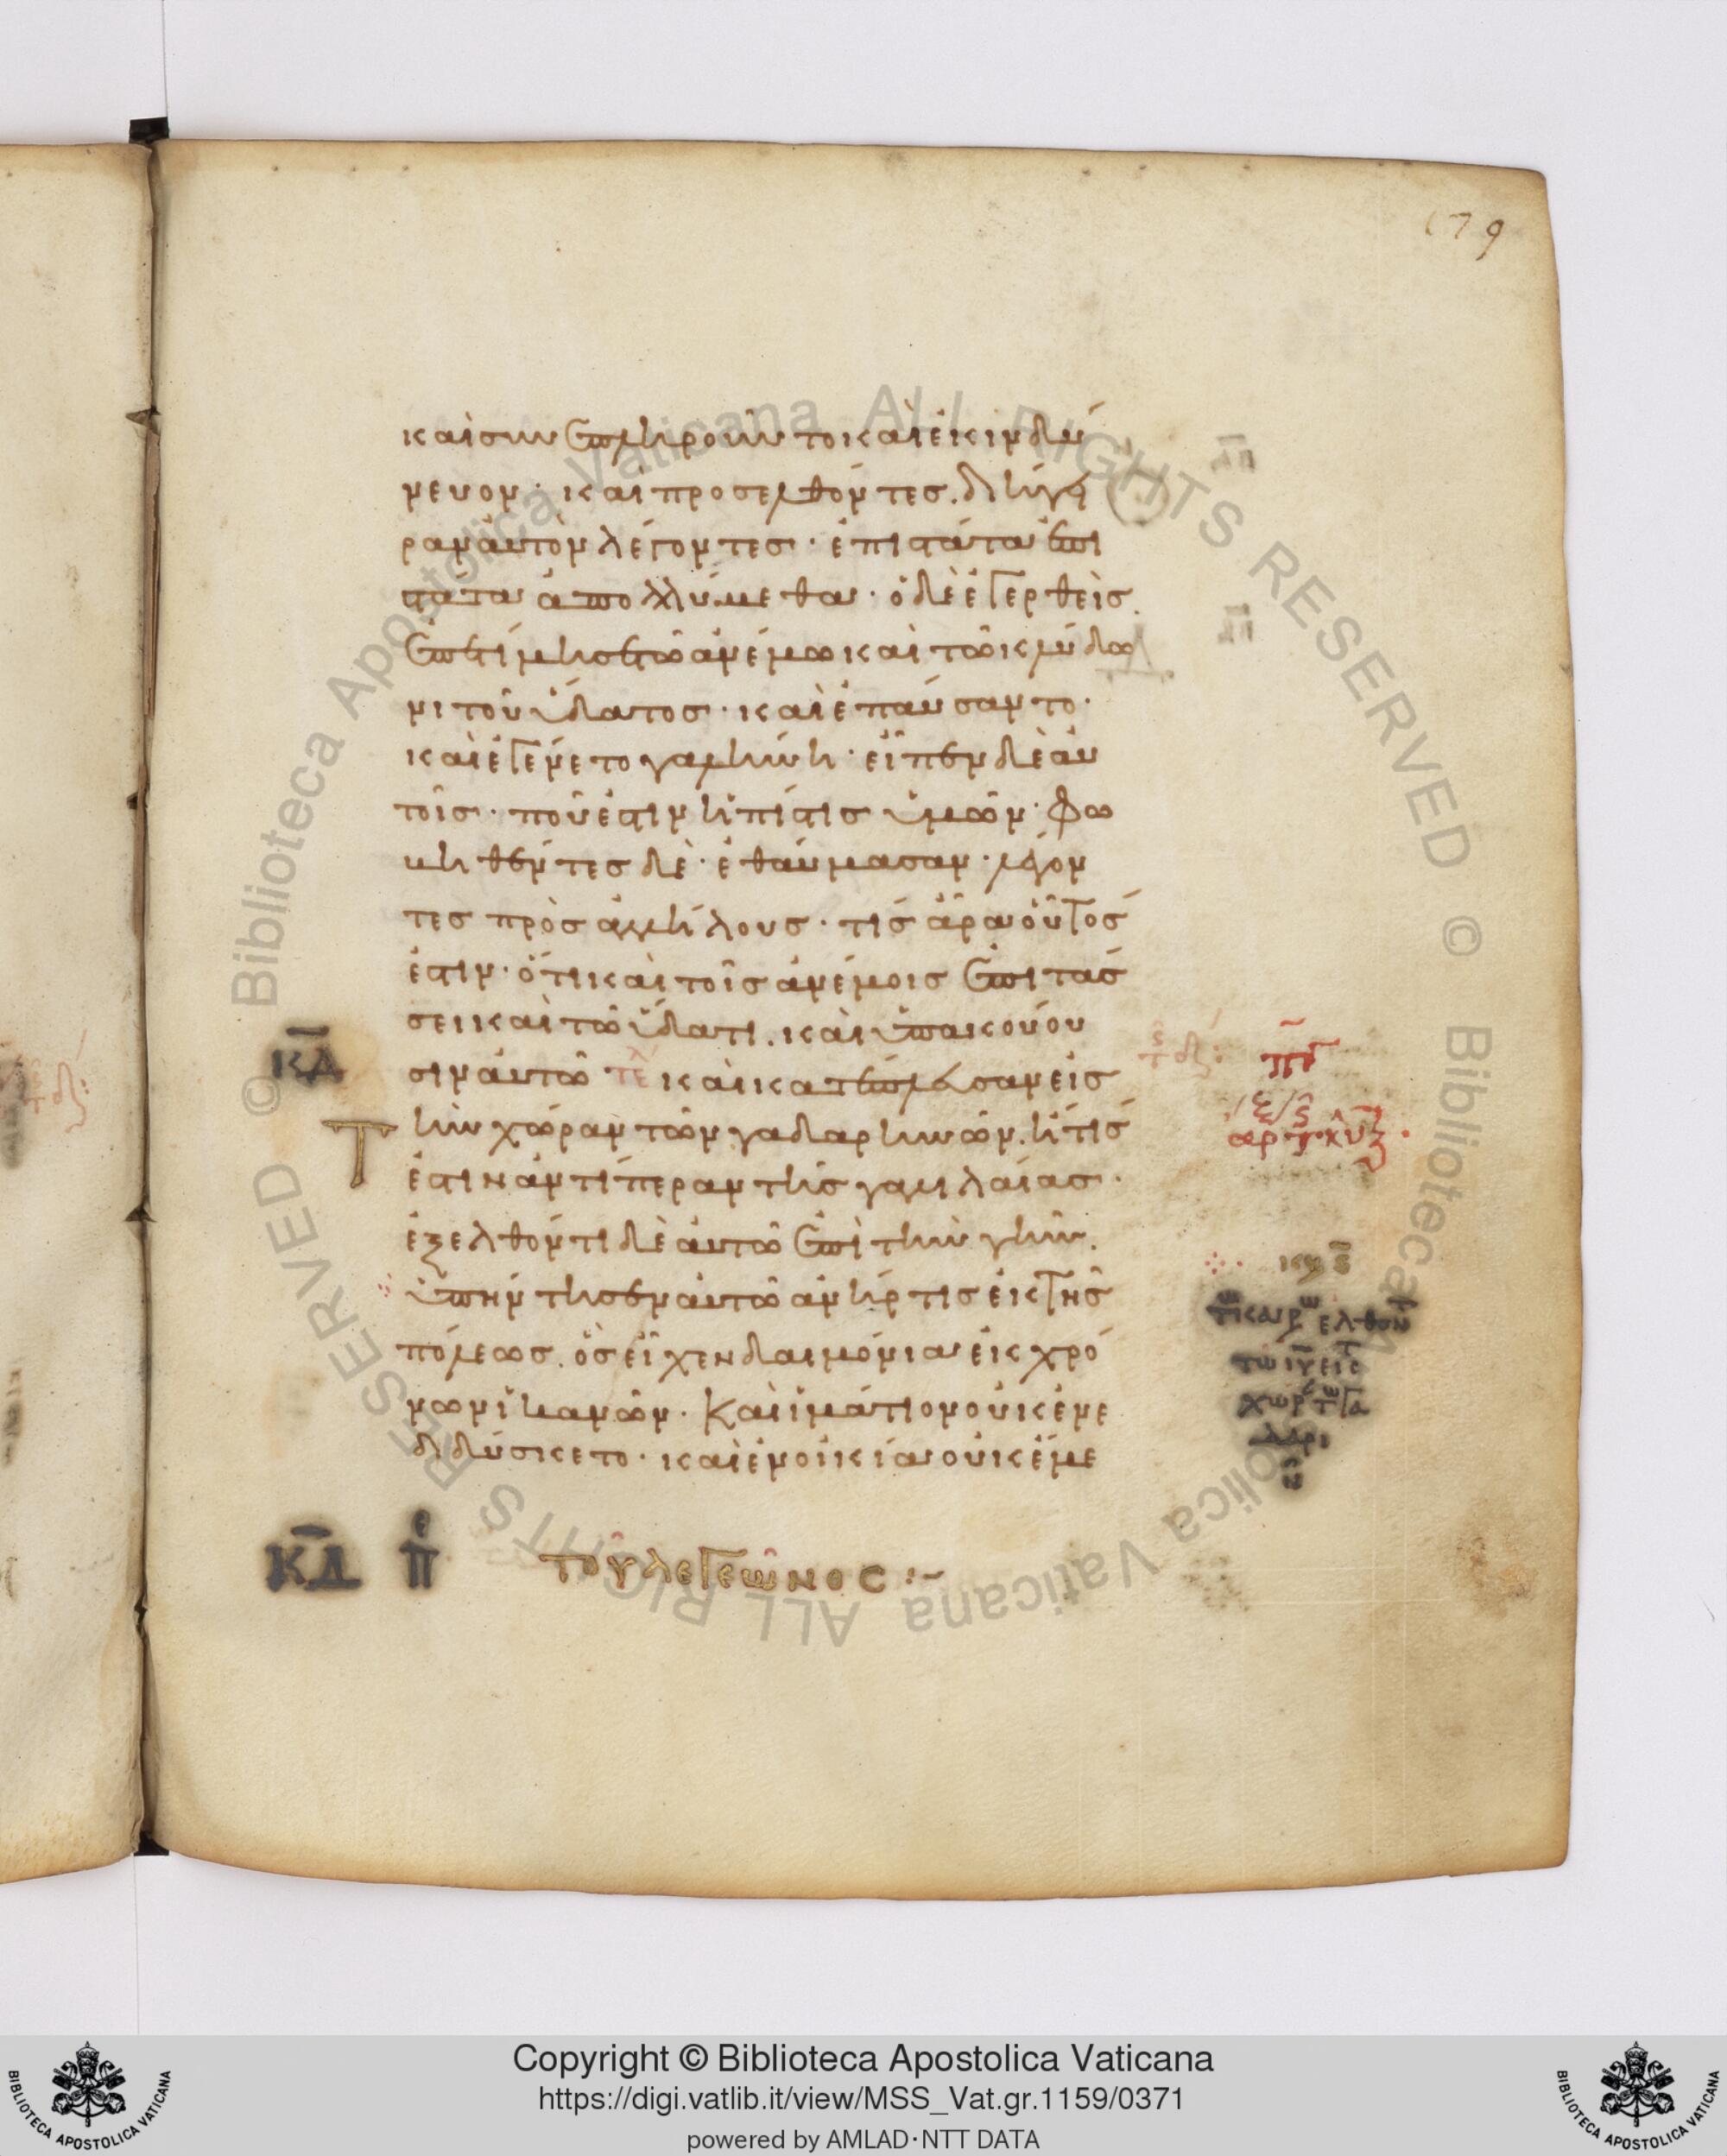 179
καὶ συνεπληροῦντο καὶ ἐκινδύ
νευον· καὶ προσελθόντες. διήγει
ραν αὐτὸν λέγοντες· ἐπιστάτα ἐπι
στάτα ἀπολλύμεθα· ὁ δὲ ἐγερθεὶς.
ἐπετίμησε τῶ ἀνέμω καὶ τῶ κλύδω
νι τοῦ ὕδατος· καὶ ἐπαύσαντο·
καὶ ἐγένετο γαλήνη· εἶπεν δὲ αὐ
τοῖς· ποῦ ἐστιν ἡ πίστις ὑμῶν· φο
βηθέντες δὲ· ἐθαύμασαν· λέγον
τες πρὸς ἀλλήλους· τίς ἄρα οὗτός
ἐστιν· ὅτι καὶ τοῖς ἀνέμοις ἐπιτάσ
σει καὶ τῶ ὕδατι. καὶ ὑπακούου
ΚΔ
σιν αὐτῶ τε καὶ κατέπλευσαν εἰς
Τὴν χώραν τῶν γαδαρηνῶν. ἥτις
ἐστιν ἀντίπεραν τῆς γαλιλαίας·
ἐξελθόντι δὲ αὐτῶ ἐπὶ τὴν γῆν.
ὑπήντησεν αὐτῶ ἀνήρ τις ἐκ τῆς
πόλεως. ὃς εἶχεν δαιμόνια ἐκ χρό
νων ἱκανῶν· Καὶ ἱμάτιον οὐκ ἐνε
διδύσκετο· καὶ ἐν οἰκία οὐκ ἔμε
ΠΓ
ΚΔ πε τοῦ λεγεῶνος :~
Copyright © Biblioteca Apostolica Vaticana
https://digi.vatlib.it/view/MSS_Vat.gr.1159/0371
powered by AMLAD·NTT DATA
BIBLIOTECA APOSTOLICA VATICANA
BIBLIOTECA APOSTOLICA VATICANA
© Biblioteca Apostolica Vaticana ALL RIGHTS RESERVED
© Biblioteca Apostolica Vaticana ALL RIGHTS RESERVED